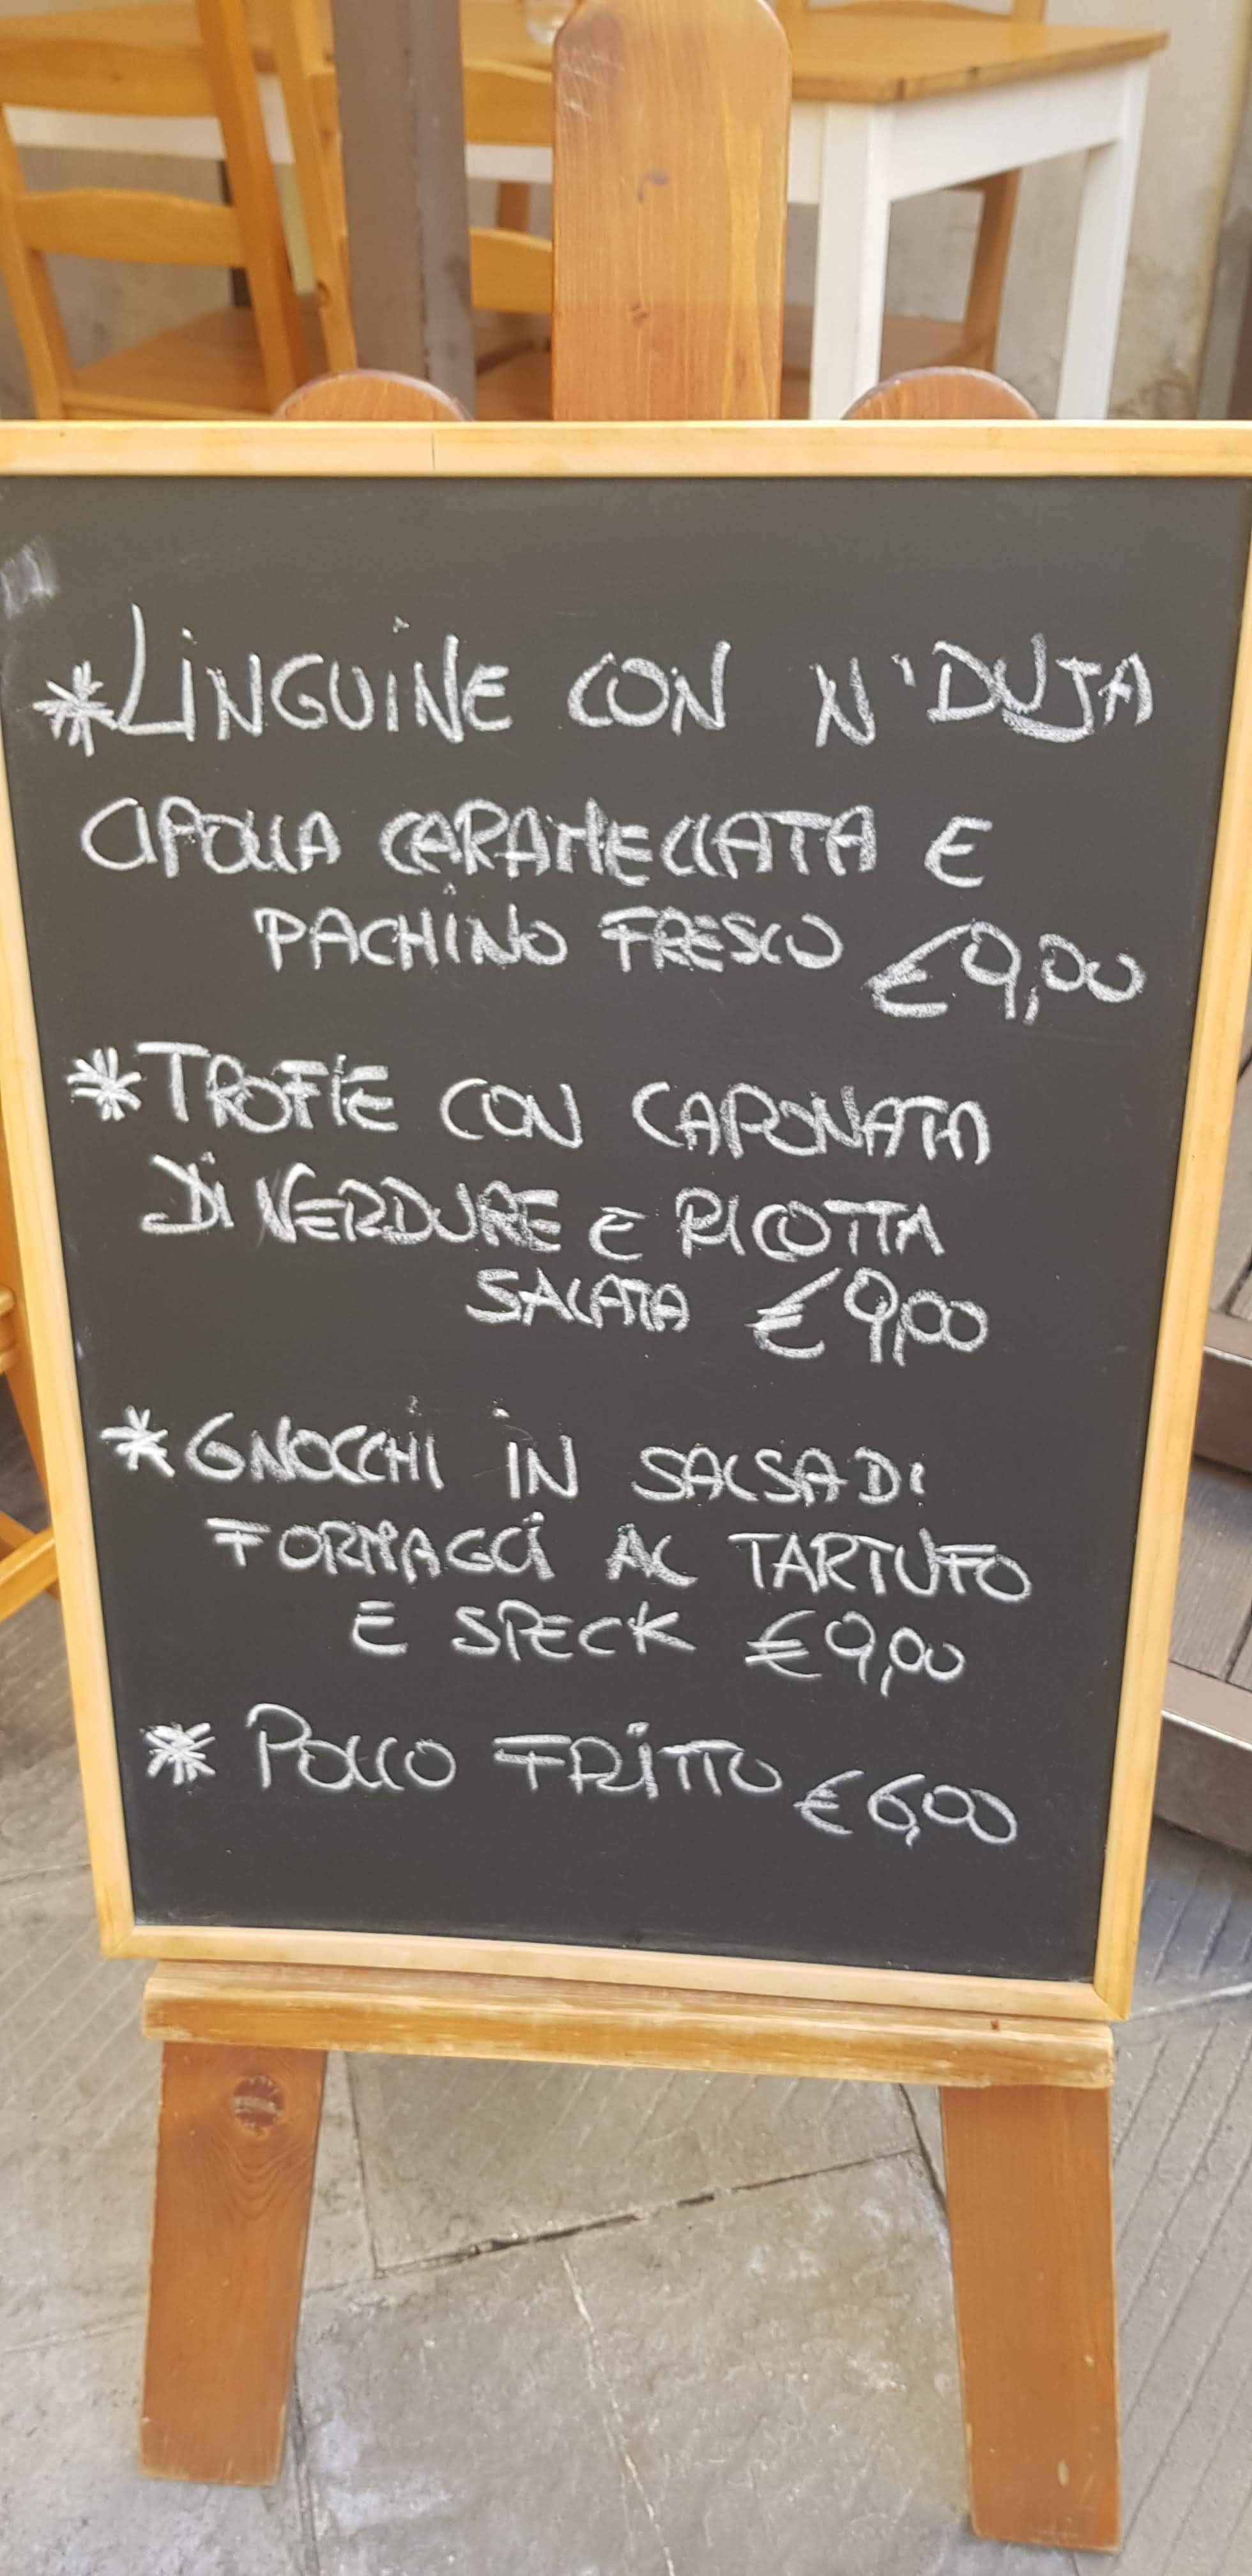 *LINGUINE CON N'DUJA
CIPOLLA CARAMELLATA E
PACHINO FRESCO €9,00
*TROFIE CON CAPONATA
DI VERDURE E RICOTTA
SALATA €9,00
*GNOCCHI IN SALSA DI
FORMAGGI AL TARTUFO
E SPECK €9,00
* POLLO FRITTO €6,00